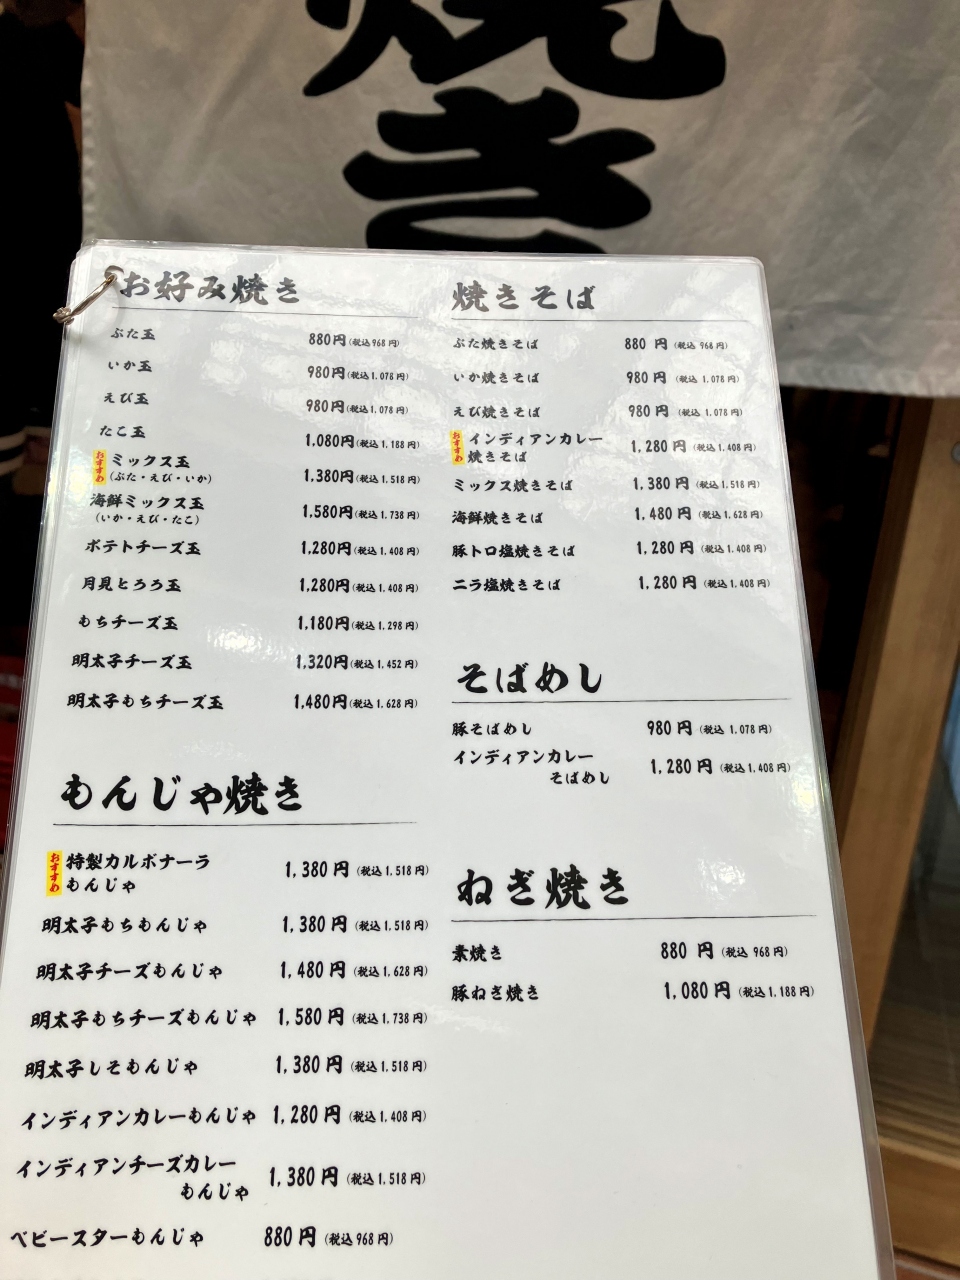 焼き
お好み焼き
ぶた玉 880円(税込968円)
いか玉 980円(税込1,078円)
えび玉 980円(税込1,078円)
たこ玉 1,080円(税込1,188円)
おすすめ ミックス玉 1,380円(税込1,518円)
(ぶた・えび・いか)
海鮮ミックス玉 1,580円(税込1,738円)
(いか・えび・たこ)
ポテトチーズ玉 1,280円(税込1,408円)
月見とろろ玉 1,280円(税込1,408円)
もちチーズ玉 1,180円(税込1,298円)
明太子チーズ玉 1,320円(税込1,452円)
明太子もちチーズ玉 1,480円(税込1,628円)
もんじゃ焼き
おすすめ 特製カルボナーラ
もんじゃ 1,380円(税込1,518円)
明太子もちもんじゃ 1,380円(税込1,518円)
明太子チーズもんじゃ 1,480円(税込1,628円)
明太子もちチーズもんじゃ 1,580円(税込1,738円)
明太子しそもんじゃ 1,380円(税込1,518円)
インディアンカレーもんじゃ 1,280円(税込1,408円)
インディアンチーズカレー
もんじゃ 1,380円(税込1,518円)
ベビースターもんじゃ 880円(税込968円)
焼きそば
ぶた焼きそば 880円(税込968円)
いか焼きそば 980円(税込1,078円)
えび焼きそば 980円(税込1,078円)
おすすめ インディアンカレー
焼きそば 1,280円(税込1,408円)
ミックス焼きそば 1,380円(税込1,518円)
海鮮焼きそば 1,480円(税込1,628円)
豚トロ塩焼きそば 1,280円(税込1,408円)
ニラ塩焼きそば 1,280円(税込1,408円)
そばめし
豚そばめし 980円(税込1,078円)
インディアンカレー
そばめし 1,280円(税込1,408円)
ねぎ焼き
素焼き 880円(税込968円)
豚ねぎ焼き 1,080円(税込1,188円)